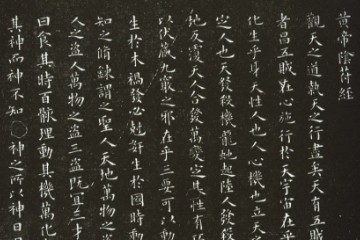 黄帝陰符經
觀天之道執天之行盡矣天有五賊
者昌五賊在心施行於天宇宙在乎
化生乎身天性人也人心機也立天
定人也天發殺機龍蛇起陸人發殺
地反覆天人合發萬變定基性有
以伏藏九竅之邪在乎三要可以動
生於木禍發必剋姧生於國時動
知之脩鍊謂之聖人天地萬物之盜
人之盜人萬物之盜三盜既宜三才
曰食其時百骸理動其機萬化
其神而神不知神之所以神日月